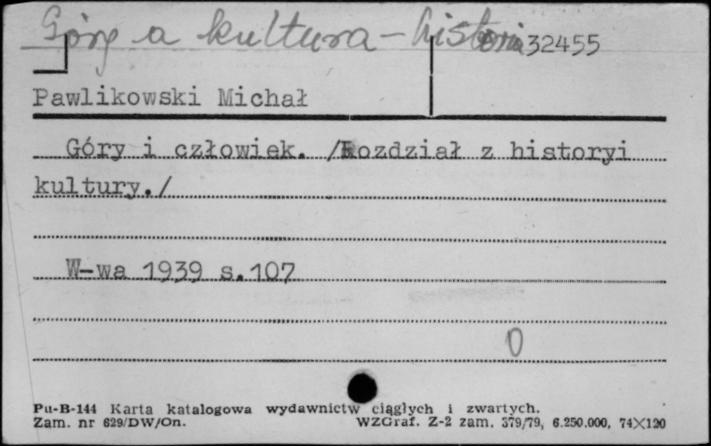 Góry a kultura - historia
32455
Pawlikowski Michał
Góry i człowiek. /Rozdział z historyi
kultury./
W-wa 1939 s.107
0
Pu-B-144 Karta katalogowa wydawnictw ciągłych i zwartych.
Zam. nr 629/DW/On. WZGraf. Z-2 zam. 379/79, 6.250.000, 74×120